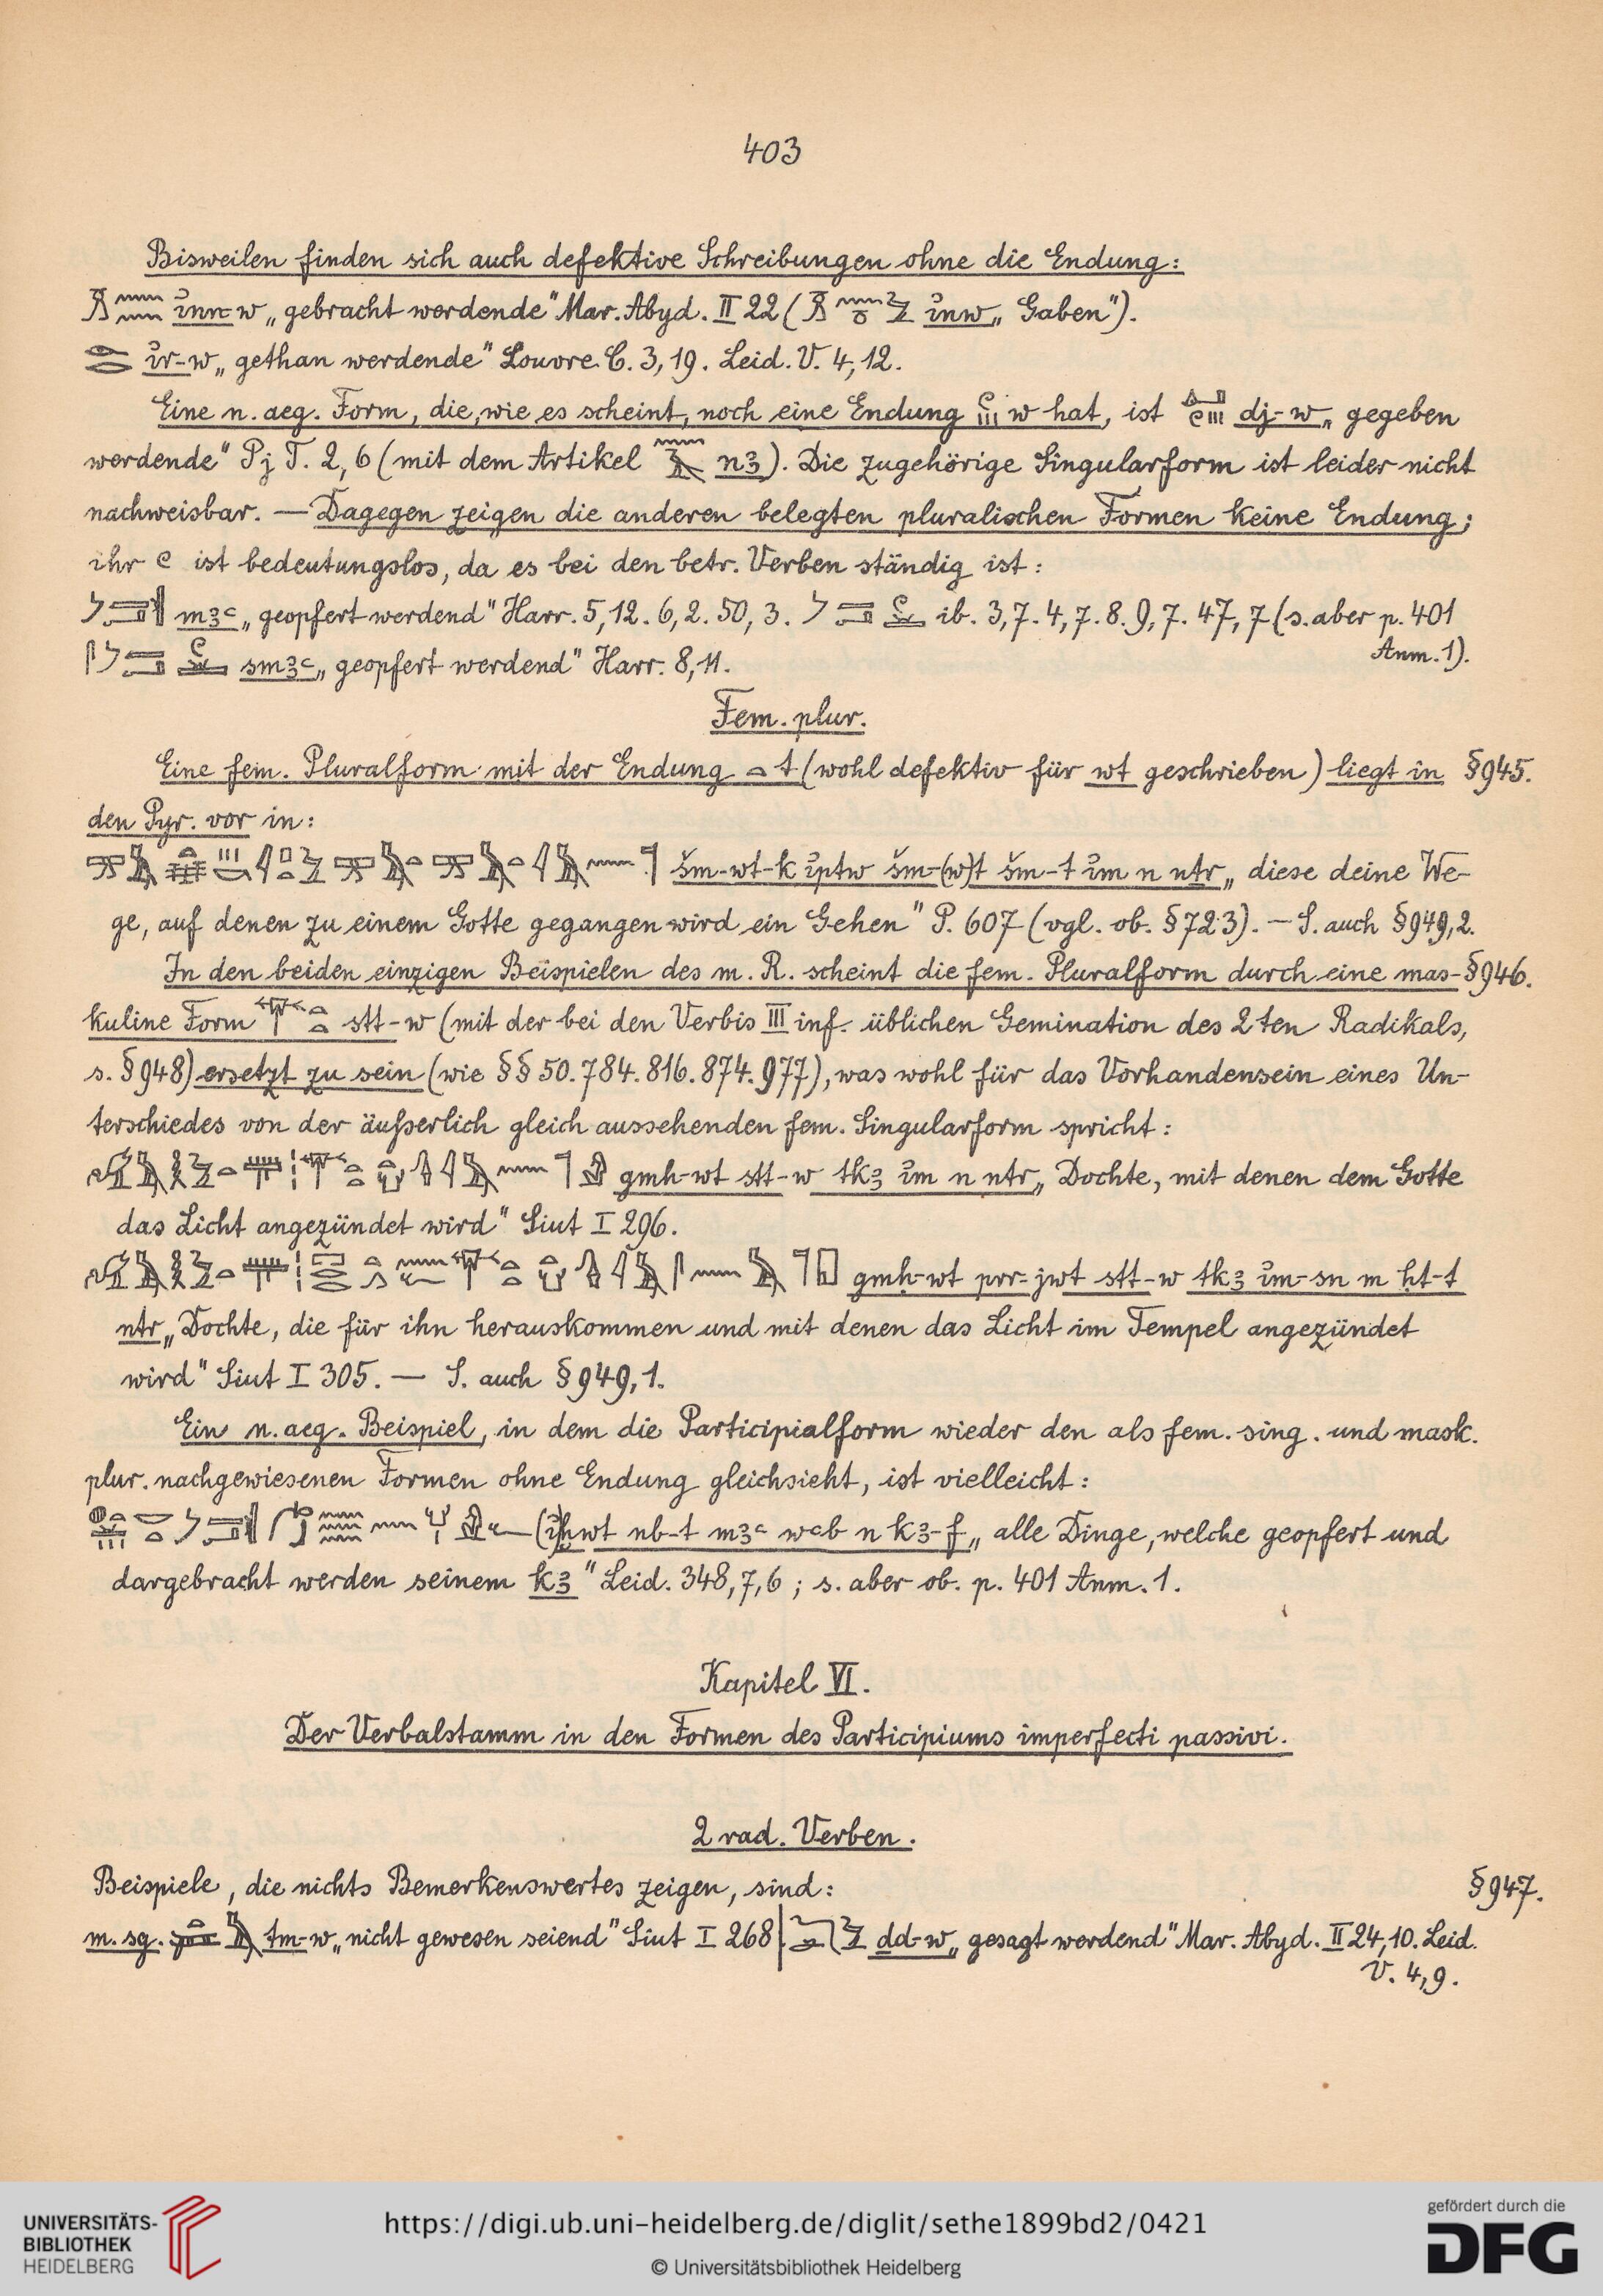 403
Bisweilen finden sich auch defektive Schreibungen ohne die Endung:
i҆nn-w „gebracht werdende" Mar. Abyd. II 22 ( i҆nw „Gaben").
i҆r-w „gethan werdende" Louvre C. 3, 19. Leid. V. 4, 12.
Eine n. aeg. Form, die, wie es scheint, noch eine Endung w hat, ist dj-w „gegeben
werdende" Pj T. 2, 6 (mit dem Artikel nꜣ). Die zugehörige Singularform ist leider nicht
nachweisbar. — Dagegen zeigen die anderen belegten pluralischen Formen keine Endung;
ihr ist bedeutungslos, da es bei den betr. Verben ständig ist:
mꜣꜥ „geopfert werdend" Harr. 5, 12. 6, 2. 50, 3. ib. 3, 7. 4, 7. 8. 9, 7. 47, 7 (s. aber p. 401
Anm. 1).
smꜣꜥ „geopfert werdend" Harr. 8, 11.
Fem. plur.
Eine fem. Pluralform mit der Endung t (wohl defektiv für wt geschrieben) liegt in §945.
den Pyr. vor in:
šm-wt-k i҆ptw šm-(w)t šm-t i҆m n nṯr „diese deine We-
ge, auf denen zu einem Gotte gegangen wird ein Gehen" P. 607 (vgl. ob. §723). — S. auch §949, 2.
In den beiden einzigen Beispielen des m. R. scheint die fem. Pluralform durch eine mas- §946.
kuline Form stt-w (mit der bei den Verbis III inf. üblichen Gemination des 2ten Radikals,
s. §948) ersetzt zu sein (wie §§ 50. 784. 816. 874. 977), was wohl für das Vorhandensein eines Un-
terschiedes von der äußerlich gleich aussehenden fem. Singularform spricht:
gmḥ-wt stt-w tkꜣ i҆m n nṯr „Dochte, mit denen dem Gotte
das Licht angezündet wird" Siut I 296.
gmḥ-wt prr-jwt stt-w tkꜣ i҆m-sn m ḥt-t
nṯr „Dochte, die für ihn herauskommen und mit denen das Licht im Tempel angezündet
wird" Siut I 305. — S. auch §949, 1.
Ein n. aeg. Beispiel, in dem die Participialform wieder den als fem. sing. und mask.
plur. nachgewiesenen Formen ohne Endung gleichsieht, ist vielleicht:
nb-t mꜣꜥ wꜥb n kꜣ-f „alle Dinge, welche geopfert und
dargebracht werden seinem kꜣ" Leid. 348, 7, 6; s. aber ob. p. 401 Anm. 1.
Kapitel VI.
Der Verbalstamm in den Formen des Participiums imperfecti passivi.
2 rad. Verben.
Beispiele, die nichts Bemerkenswertes zeigen, sind: §947.
m. sg. tm-w „nicht gewesen seiend" Siut I 268 | ḏd-w „gesagt werdend" Mar. Abyd. II 24, 10. Leid.
V. 4, 9.
UNIVERSITÄTS-
BIBLIOTHEK
HEIDELBERG
https://digi.ub.uni-heidelberg.de/diglit/sethe1899bd2/0421
© Universitätsbibliothek Heidelberg
gefördert durch die
DFG